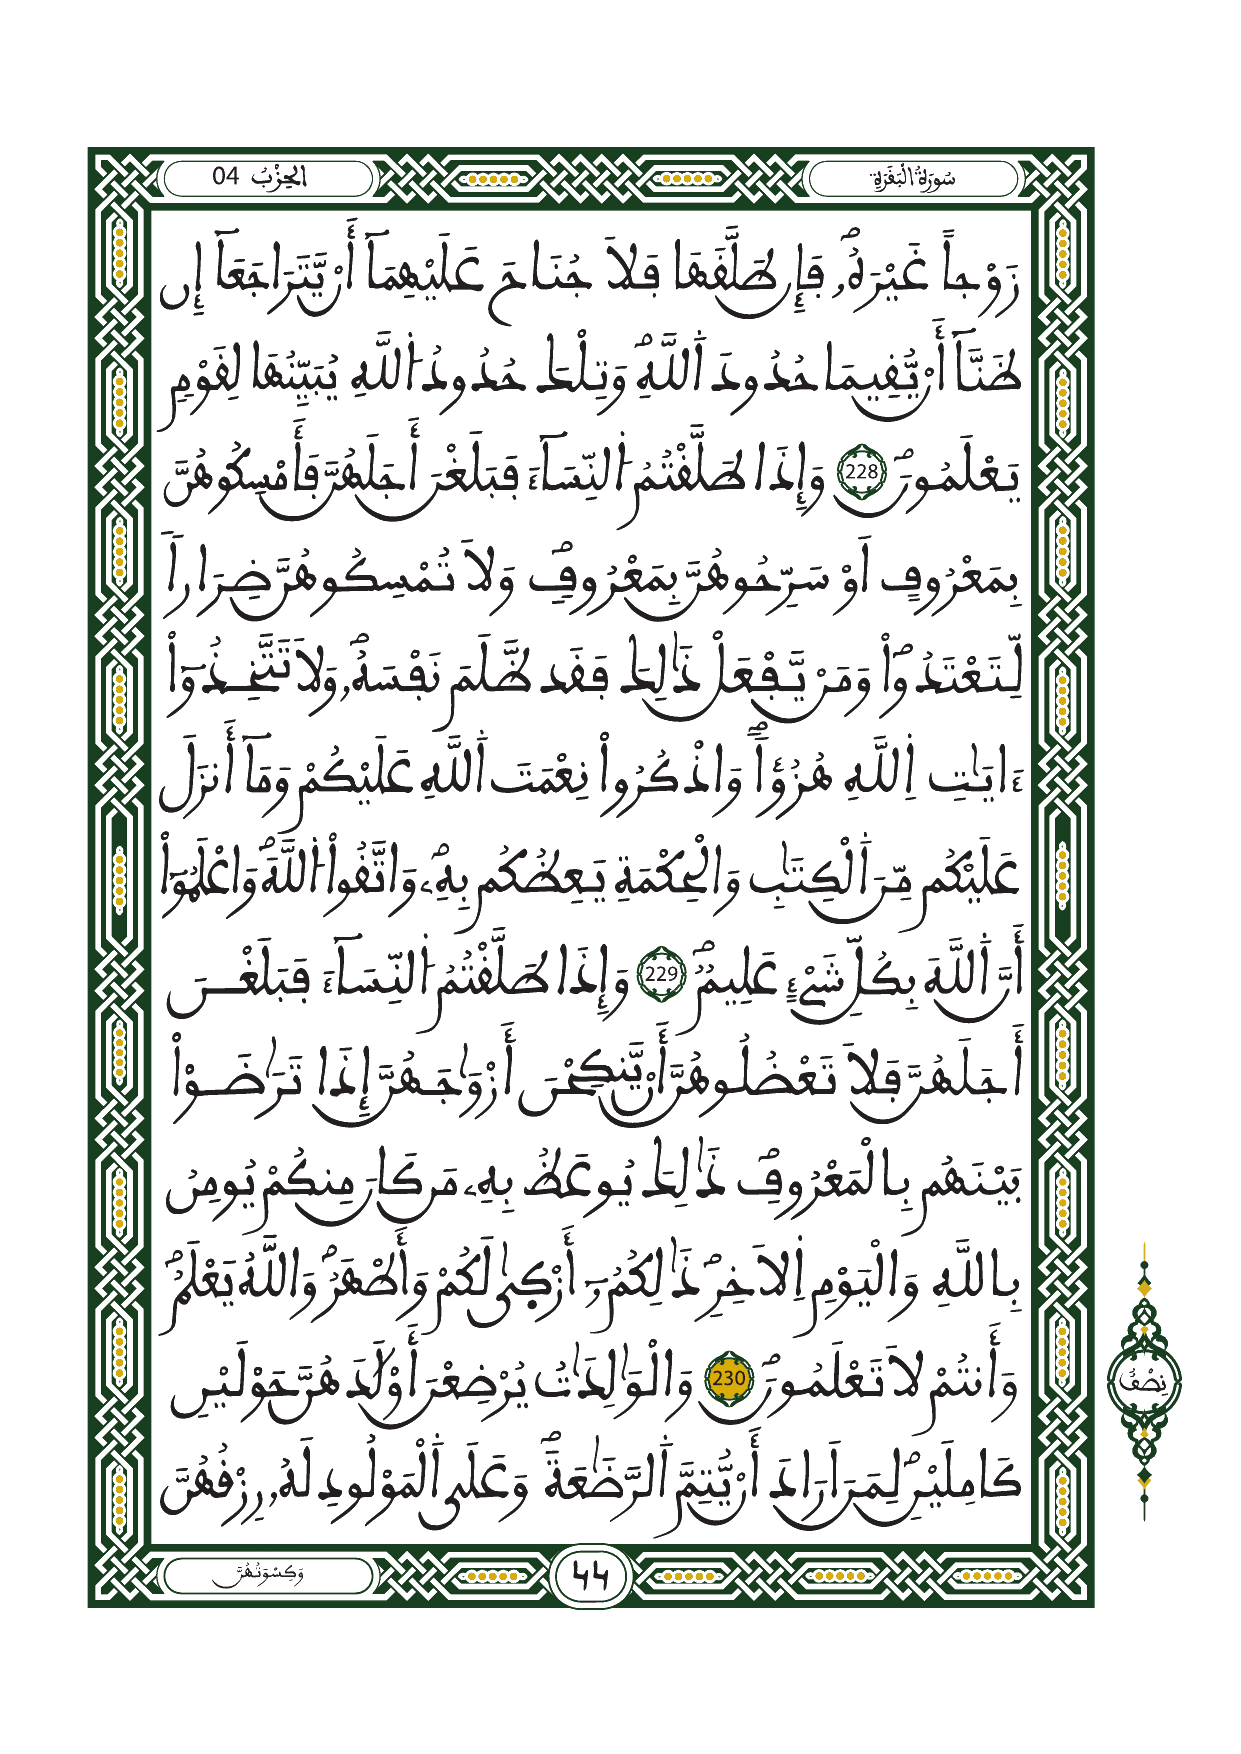 سُورَةُ الْبَقَرَةِ
الْحِزْبُ 04
زَوْجاً غَيْرَهُۥ فَإِن طَلَّقَهَا فَلَا جُنَاحَ عَلَيْهِمَآ أَنْ يَّتَرَاجَعَآ إِن
ظَنَّآ أَنْ يُّقِيمَا حُدُودَ اَ۬للَّهِ وَتِلْكَ حُدُودُ اُ۬للَّهِ يُبَيِّنُهَا لِقَوْمٍ
يَعْلَمُونَ 228 وَإِذَا طَلَّقْتُمُ اُ۬لنِّسَآءَ فَبَلَغْنَ أَجَلَهُنَّ فَأَمْسِكُوهُنَّ
بِمَعْرُوفٍ أَوْ سَرِّحُوهُنَّ بِمَعْرُوفٍ وَلَا تُمْسِكُوهُنَّ ضِرَاراً
لِّتَعْتَدُواْ وَمَنْ يَّفْعَلْ ذَٰلِكَ فَقَد ظَّلَمَ نَفْسَهُۥ وَلَا تَتَّخِذُوٓاْ
ءَايَٰتِ اِ۬للَّهِ هُزُؤاً وَاذْكُرُواْ نِعْمَتَ اَ۬للَّهِ عَلَيْكُمْ وَمَآ أَنزَلَ
عَلَيْكُم مِّنَ اَ۬لْكِتَٰبِ وَالْحِكْمَةِ يَعِظُكُم بِهِۦ وَاتَّقُواْ اُ۬للَّهَ وَاعْلَمُوٓاْ
أَنَّ اَ۬للَّهَ بِكُلِّ شَيْءٍ عَلِيمٌ 229 وَإِذَا طَلَّقْتُمُ اُ۬لنِّسَآءَ فَبَلَغْنَ
أَجَلَهُنَّ فَلَا تَعْضُلُوهُنَّ أَنْ يَّنكِحْنَ أَزْوَٰجَهُنَّ إِذَا تَرَٰضَوْاْ
بَيْنَهُم بِالْمَعْرُوفِ ذَٰلِكَ يُوعَظُ بِهِۦ مَن كَانَ مِنكُمْ يُومِنُ
بِاللَّهِ وَالْيَوْمِ اِ۬لَاخِرِ ذَٰلِكُمُۥٓ أَزْك۪ىٰ لَكُمْ وَأَطْهَرُ وَاللَّهُ يَعْلَمُ
وَأَنتُمْ لَا تَعْلَمُونَ 230 وَالْوَٰلِدَٰتُ يُرْضِعْنَ أَوْلَٰدَهُنَّ حَوْلَيْنِ
كَامِلَيْنِ لِمَنَ اَرَادَ أَنْ يُّتِمَّ اَ۬لرَّضَٰعَةَ وَعَلَى اَ۬لْمَوْلُودِ لَهُۥ رِزْقُهُنَّ
نِصْفُ
وَكِسْوَتُهُنَّ
٤٤